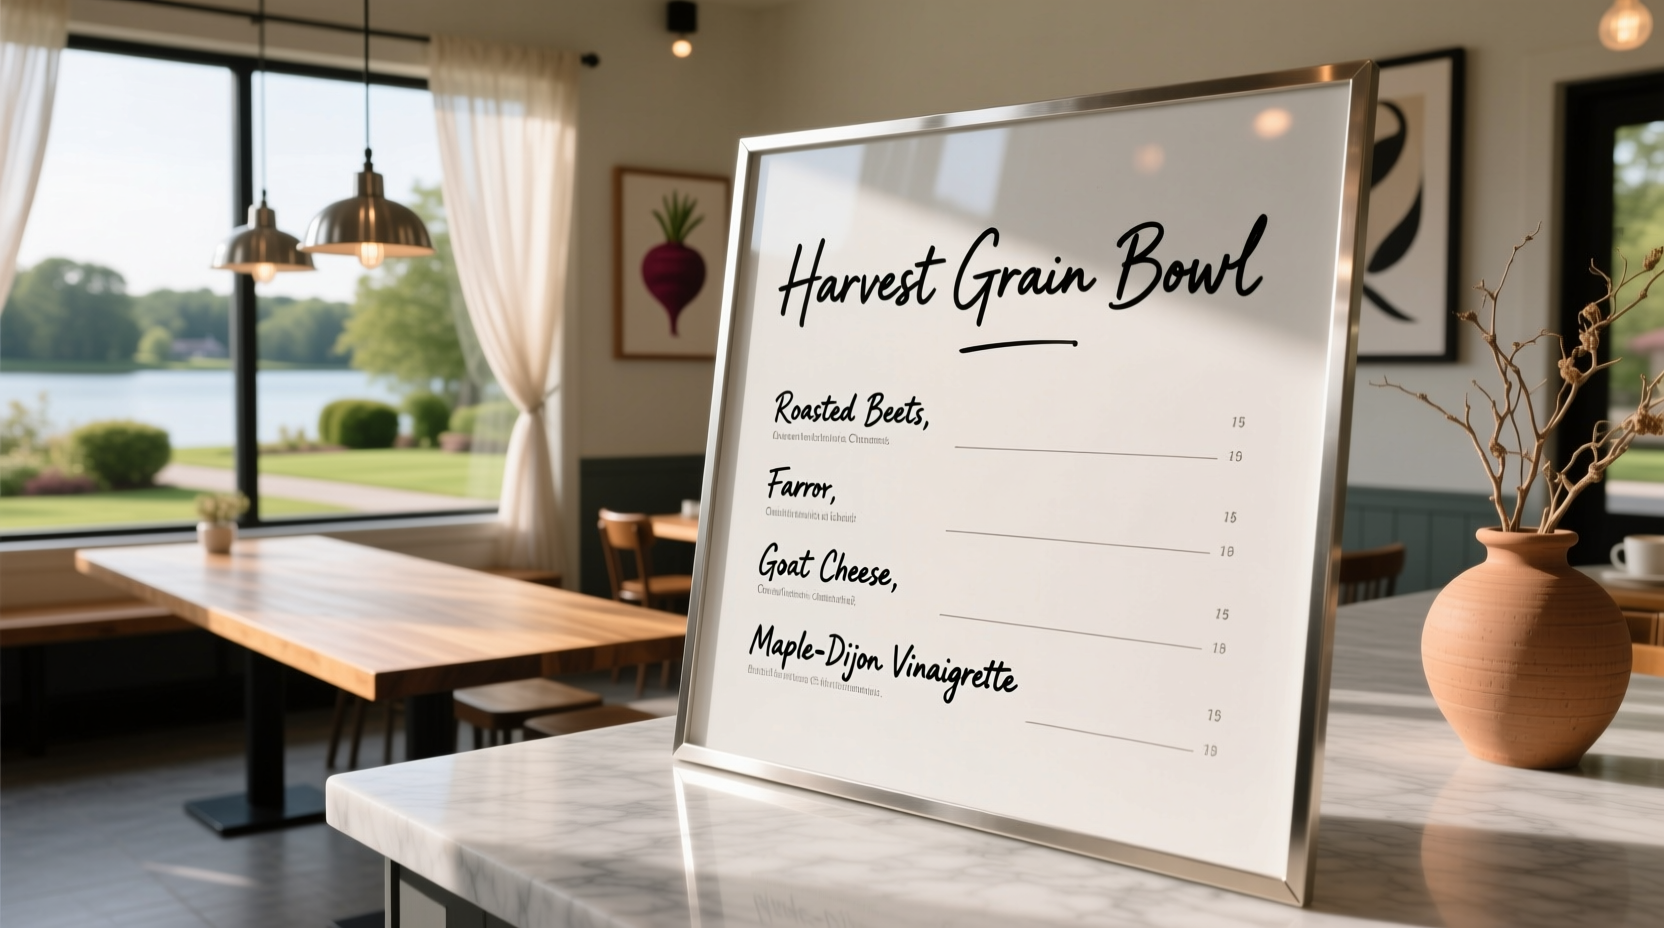 Harvest Grain Bowl
Roasted Beets,
15
19
Farror,
15
18
Goat Cheese,
15
18
Maple-Dijon Vinaigrette
15
19